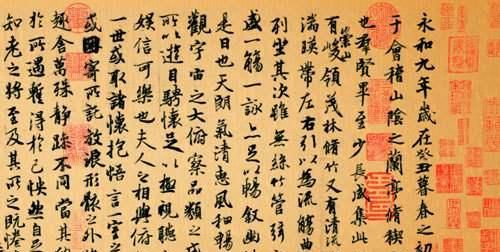 永和九年歲在癸丑暮春之初
于會稽山陰之蘭亭脩禊
也群賢畢至少長咸集此
有崇山峻領茂林脩竹又有清流
湍暎帶左右引以為流觴曲
列坐其次雖無絲竹管弦
盛一觴一詠亦足以暢敘幽
是日也天朗氣清惠風和暢
觀宇宙之大俯察品類之盛
所以遊目騁懷足以極視聽
娛信可樂也夫人之相與俯
一世或取諸懷抱悟言一室之
或因寄所託放浪形骸之外
趣舍萬殊靜躁不同當其
於所遇暫得於己怏然自
知老之將至及其所之既惓